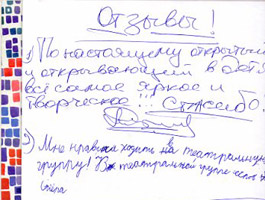 Отзывы!
1) По настоящему открытый
и открывающий в детях
всё самое яркое и
творческое!!! Спасибо!
) Мне нравится ходить на театральную
группу! В театральной группе